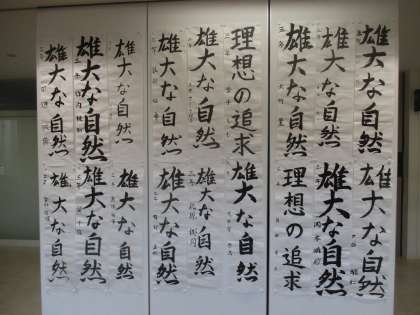 雄大な自然
雄大な自然
雄大な自然
理想の追求
雄大な自然
雄大な自然
雄大な自然
雄大な自然
雄大な自然
雄大な自然
雄大な自然
理想の追求
雄大な自然
雄大な自然
雄大な自然
雄大な自然
雄大な自然
雄大な自然